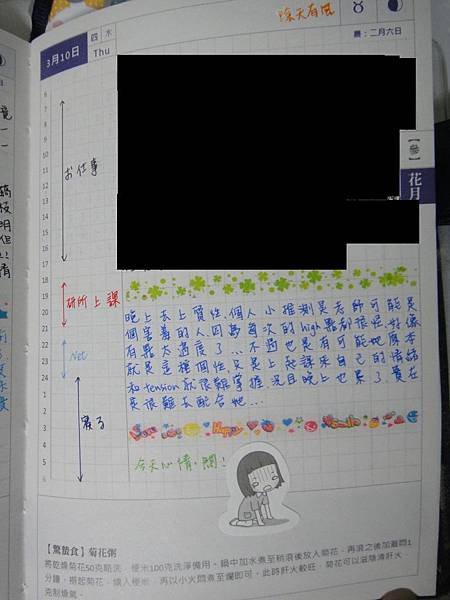 陰天有風
3月10日 四 木 Thu
農：二月六日
【參】花月
6
7
8
9
10
11
12
13
14
15
16
17
18
19
20
21
22
23
24
1
2
3
4
5
6
お仕事
研所上課
Net
寝る
晚上去上質性，個人小推測是老師可能是
個害羞的人，因為每次的high點都很怪，好像
有點太過度了...不過也是有可能她原本
就是這種個性，只是上起課來自己的情緒
和tension就很難掌握，況且晚上也累了，實在
是很難去配合她...
Happy
Smile
今天心情：悶！
【驚蟄食】菊花粥
將乾燥菊花50克略洗，粳米100克洗淨備用。鍋中加水煮至稍滾後放入菊花，再滾之後加蓋悶1
分鐘，撈起菊花，填入粳米，再以小火悶煮至爛即可。此時肝火較旺，菊花可以滋陰清肝火，
克制燥氣。